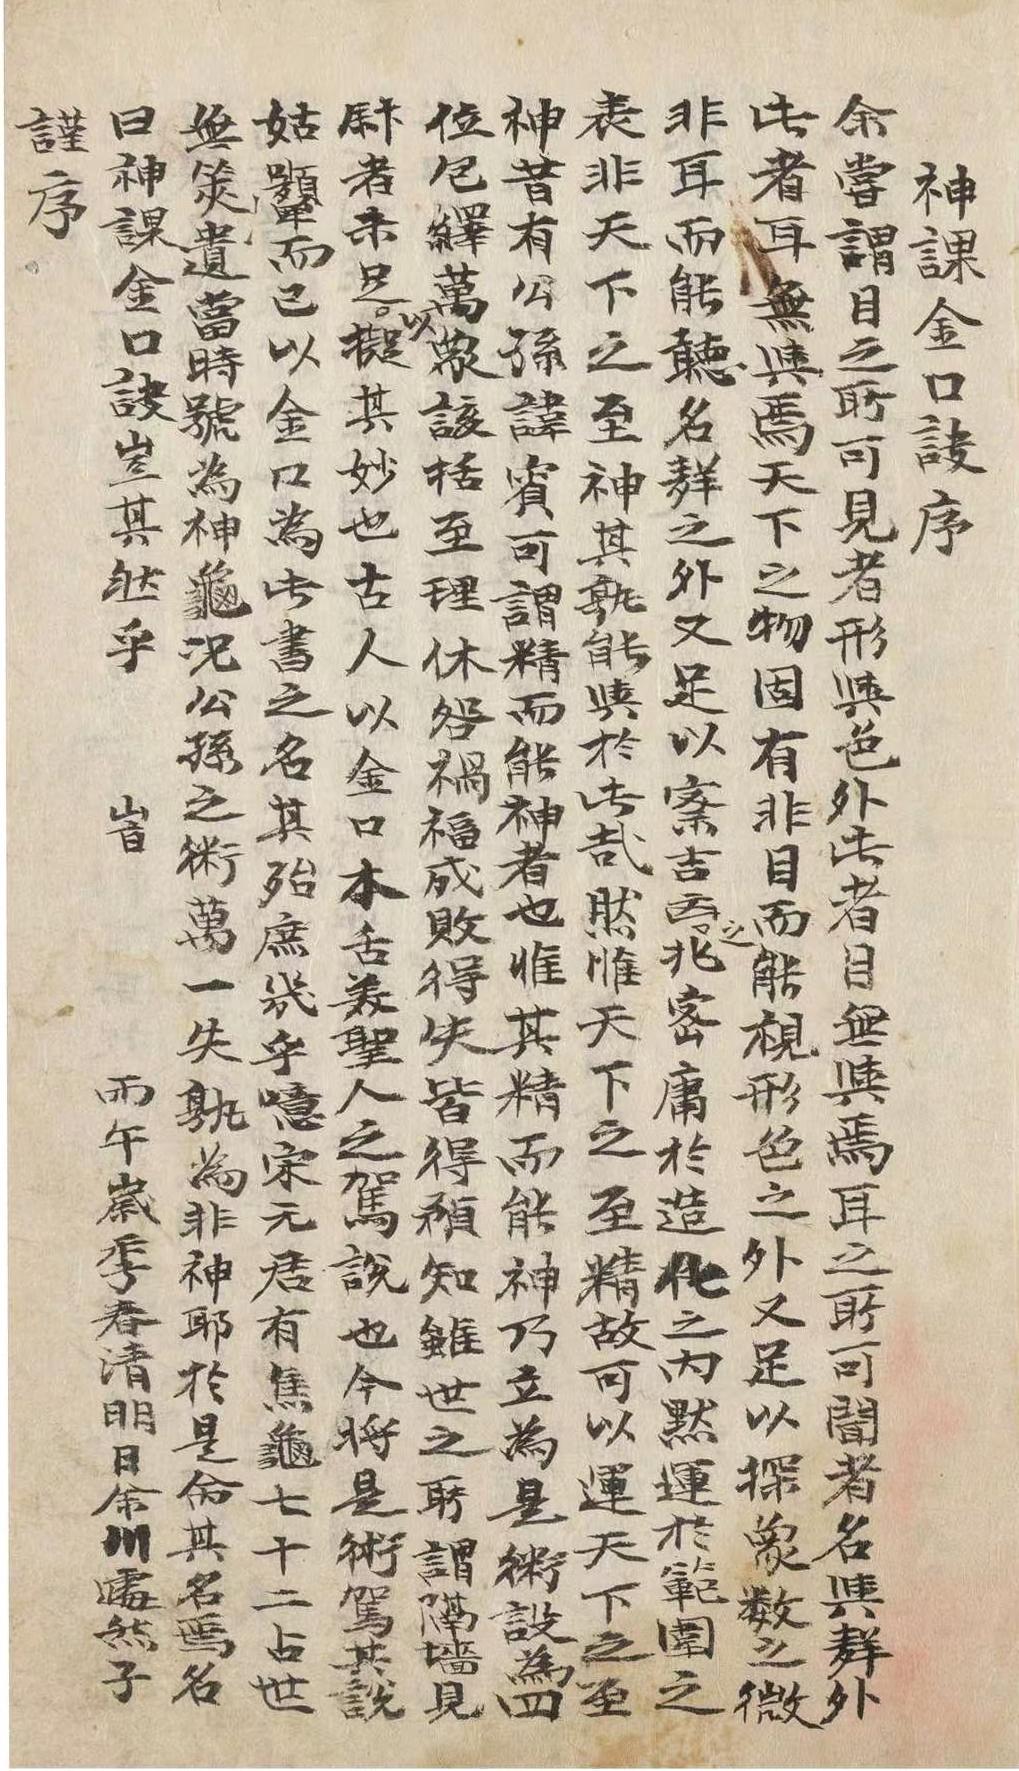 神課金口訣序
余嘗謂目之所可見者形與色外此者目無與焉耳之所可聞者名與群外
此者耳無與焉天下之物固有非目而能視形色之外又足以探象数之微
非耳而能聽名群之外又足以案吉凶之兆密庸於造化之内默運於範圍之
表非天下之至神其孰能與於此哉然惟天下之至精故可以運天下之至
神昔有公孫諱賓可謂精而能神者也惟其精而能神乃立為是術設為四
位包繹萬衆該括至理休咎禍福成敗得失皆得預知雖世之所謂隔墻見
者未足以擬其妙也古人以金口木舌美聖人之駕說也今将是術駕其說
姑而已以金口為此書之名其殆庶幾乎噫宋元君有焦龜七十二占世
無筴遺當時號為神龜況公孫之術萬一失孰為非神耶於是命其名焉名
曰神課金口訣豈其然乎 旹 丙午嵗季春清明日余川處然子
謹序